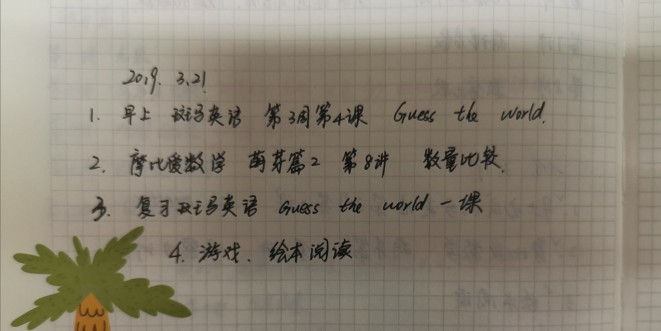 2019. 3.21
1. 早上 斑马英语 第3周第4课 Guess the world.
2. 摩比爱数学 萌芽篇2 第8讲 数量比较.
3. 复习斑马英语 Guess the world 一课
4. 游戏. 绘本阅读